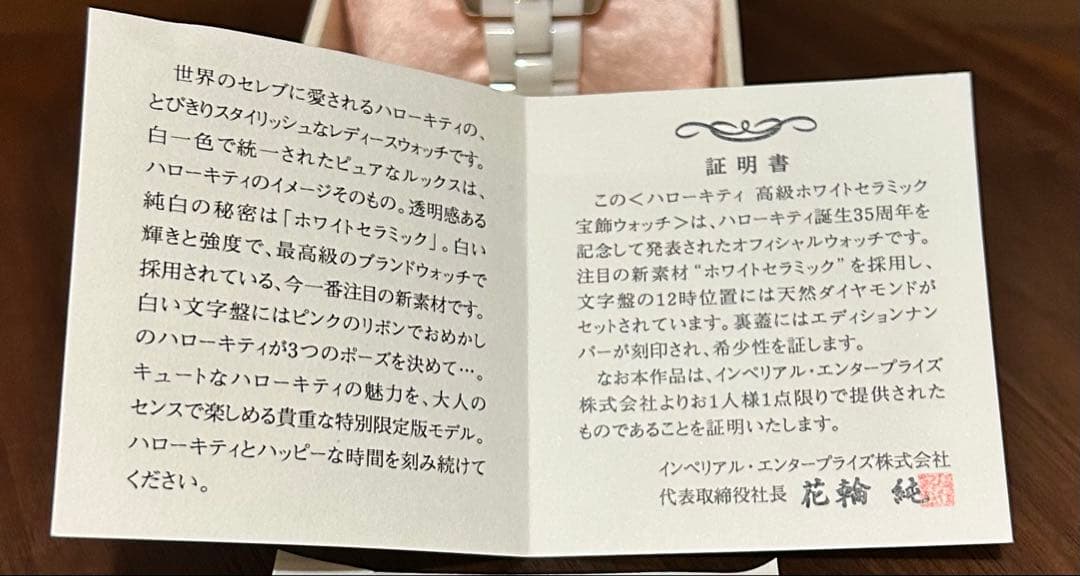 世界のセレブに愛されるハローキティの、
とびきりスタイリッシュなレディースウォッチです。
白一色で統一されたピュアなルックスは、
ハローキティのイメージそのもの。透明感ある
純白の秘密は「ホワイトセラミック」。白い
輝きと強度で、最高級のブランドウォッチで
採用されている、今一番注目の新素材です。
白い文字盤にはピンクのリボンでおめかし
のハローキティが3つのポーズを決めて…。
キュートなハローキティの魅力を、大人の
センスで楽しめる貴重な特別限定版モデル。
ハローキティとハッピーな時間を刻み続けて
ください。
証明書
この<ハローキティ 高級ホワイトセラミック
宝飾ウォッチ>は、ハローキティ誕生35周年を
記念して発表されたオフィシャルウォッチです。
注目の新素材“ホワイトセラミック”を採用し、
文字盤の12時位置には天然ダイヤモンドが
セットされています。裏蓋にはエディションナン
バーが刻印され、希少性を証します。
なお本作品は、インペリアル・エンタープライズ
株式会社よりお1人様1点限りで提供された
ものであることを証明いたします。
インペリアル・エンタープライズ株式会社
代表取締役社長 花輪 純